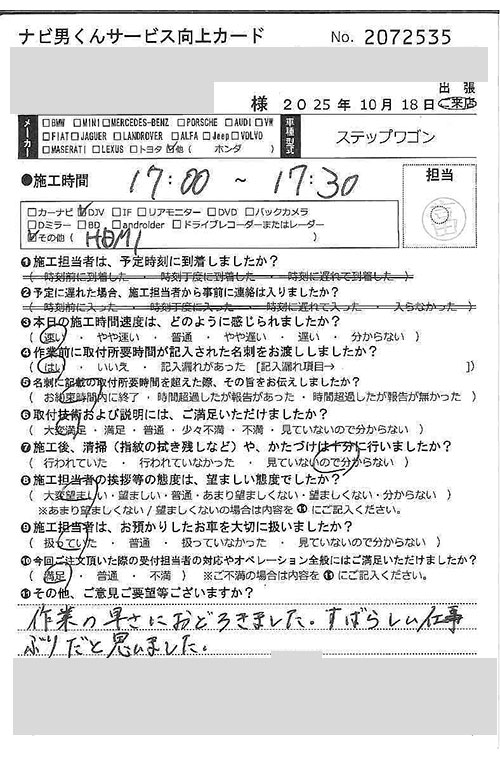 ナビ男くんサービス向上カード No. 2072535
出 張
様 2025年 10月 18日 ご来店
メーカー □BMW □MINI □MERCEDES-BENZ □PORSCHE □AUDI □VW
□FIAT □JAGUER □LANDROVER □ALFA □Jeep □VOLVO
□MASERATI □LEXUS □トヨタ ☑他( ホンダ )
車種型式 ステップワゴン
●施工時間 17:00 ~ 17:30
担当
□カーナビ ☑DJV □IF □リアモニター □DVD □バックカメラ
□Dミラー □BD □androider □ドライブレコーダーまたはレーダー
☑その他( HDMI )
❶施工担当者は、予定時刻に到着しましたか?
( 時刻前に到着した ・ 時刻丁度に到着した ・ 時刻に遅れて到着した )
❷予定に遅れた場合、施工担当者から事前に連絡は入りましたか?
( 時刻前に入った ・ 時刻丁度に入った ・ 時刻に遅れて入った ・ 入らなかった )
❸本日の施工時間速度は、どのように感じられましたか?
( 速い ・ やや速い ・ 普通 ・ やや遅い ・ 遅い ・ 分からない )
❹作業前に取付所要時間が記入された名刺をお渡ししましたか?
( はい ・ いいえ ・ 記入漏れがあった [記入漏れ項目→ ] )
❺名刺に記載の取付所要時間を超えた際、その旨をお伝えしましたか?
( お約束時間内に終了 ・ 時間超過したが報告があった ・ 時間超過したが報告が無かった )
❻取付技術および説明には、ご満足いただけましたか?
( 大変満足 ・ 満足 ・ 普通 ・ 少々不満 ・ 不満 ・ 見ていないので分からない )
❼施工後、清掃(指紋の拭き残しなど)や、かたづけは十分に行いましたか?
( 行われていた ・ 行われていなかった ・ 見ていないので分からない )
❽施工担当者の挨拶等の態度は、望ましい態度でしたか?
( 大変望ましい・望ましい・普通・あまり望ましくない・望ましくない・分からない )
※あまり望ましくない/望ましくないの場合は内容を⓫にご記入ください。
❾施工担当者は、お預かりしたお車を大切に扱いましたか?
( 扱っていた ・ 普通 ・ 扱っていなかった ・ 見ていないので分からない )
❿今回ご注文頂いた際の受付担当者の対応やオペレーション全般にはご満足いただけましたか?
( 満足 ・ 普通 ・ 不満 ) ※ご不満の場合は内容を⓫にご記入ください。
⓫その他、ご意見ご要望等ございますか?
作業の早さにおどろきました。すばらしい仕事
ぶりだと思いました。